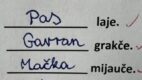 Pas laje.
Gavran grakće.
Mačka mijauče.